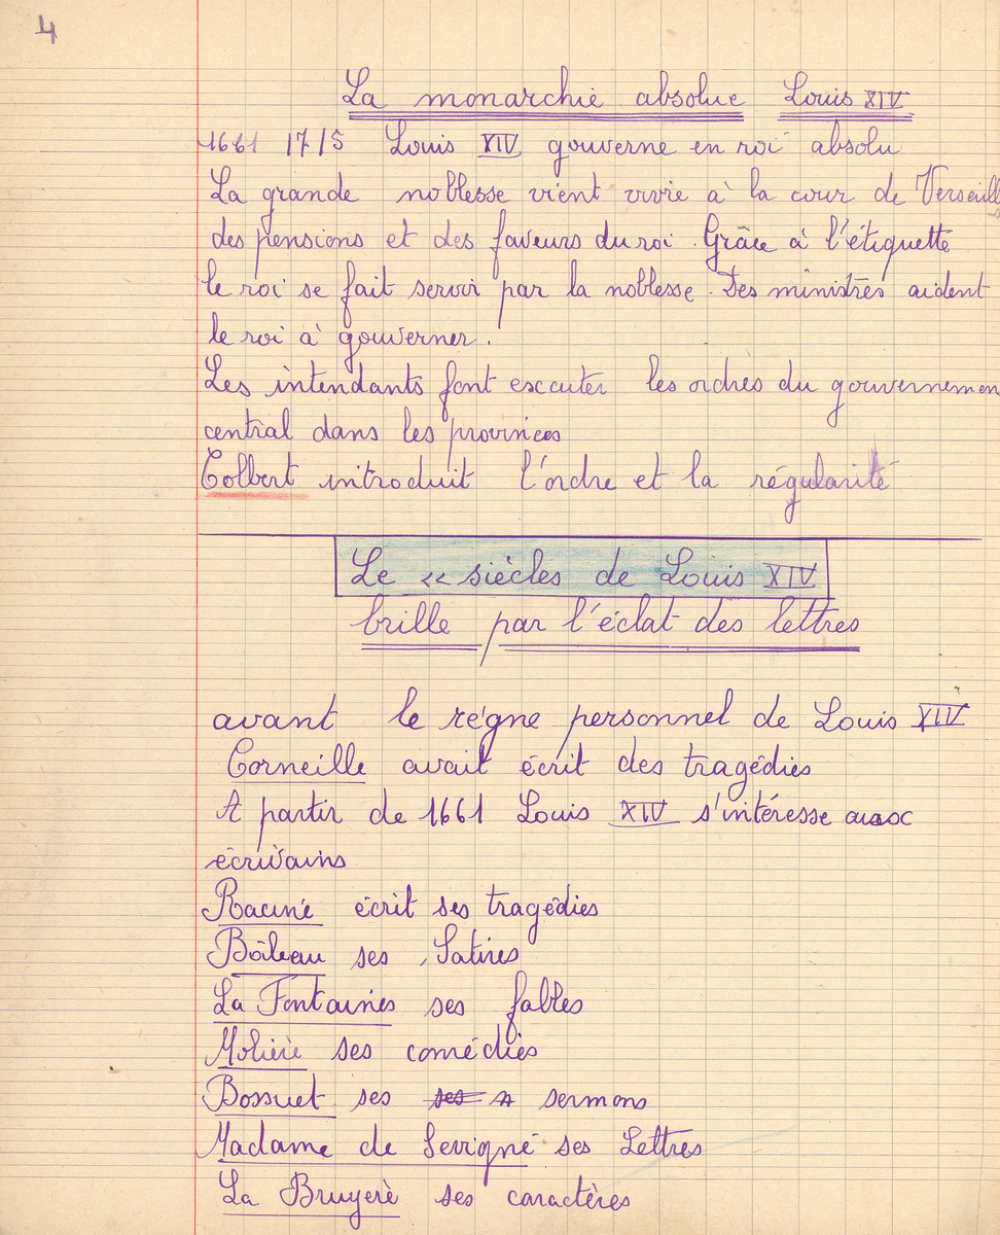 4
La monarchie absolue Louis XIV
1661 1715 Louis XIV gouverne en roi absolu
La grande noblesse vient vivre à la cour de Versaill
des pensions et des faveurs du roi. Grâce à l'étiquette
le roi se fait servir par la noblesse. Des ministres aident
le roi à gouverner.
Les intendants font excuter les ordres du gouvernemen
central dans les provinces
Colbert introduit l'ordre et la régularité
Le << siècles de Louis XIV
brille par l'éclat des lettres
avant le règne personnel de Louis XIV
Corneille avait écrit des tragédies
A partir de 1661 Louis XIV s'intéresse aux
écrivains
Racine écrit ses tragédies
Boileau ses Satires
La Fontaines ses fables
Molière ses comédies
Bossuet ses ses s sermons
Madame de Sevigné ses Lettres
La Bruyerè ses caractères